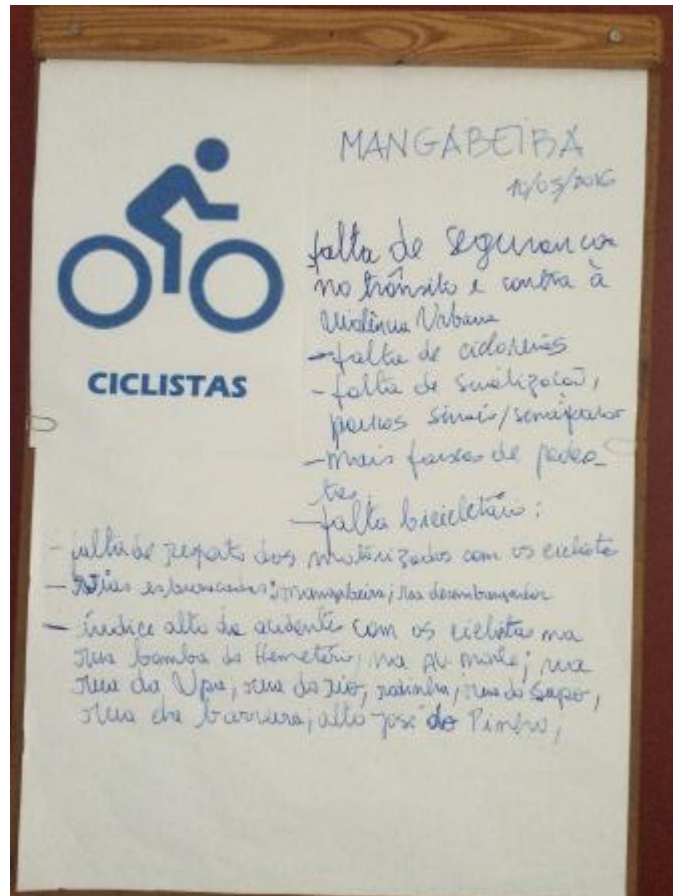 MANGABEIRA
10/05/2016
falta de segurança
no trânsito e contra à
Violência Urbana
- falta de ciclovias
- falta de sinalização,
poucos sinais/semáforos
- mais faixas de pedes-
tres
- falta bicicletário;
CICLISTAS
- falta de respeito dos motorizados com os ciclista
- vias esburacadas; Mangabeira; rua desembargador
- índice alto de acidente com os ciclista na
rua bomba do Hemetério, na Av norte; na
rua da Upa, rua do rio, rodinha, rua do Sapo,
rua da barreira, alto josé do Pinho,